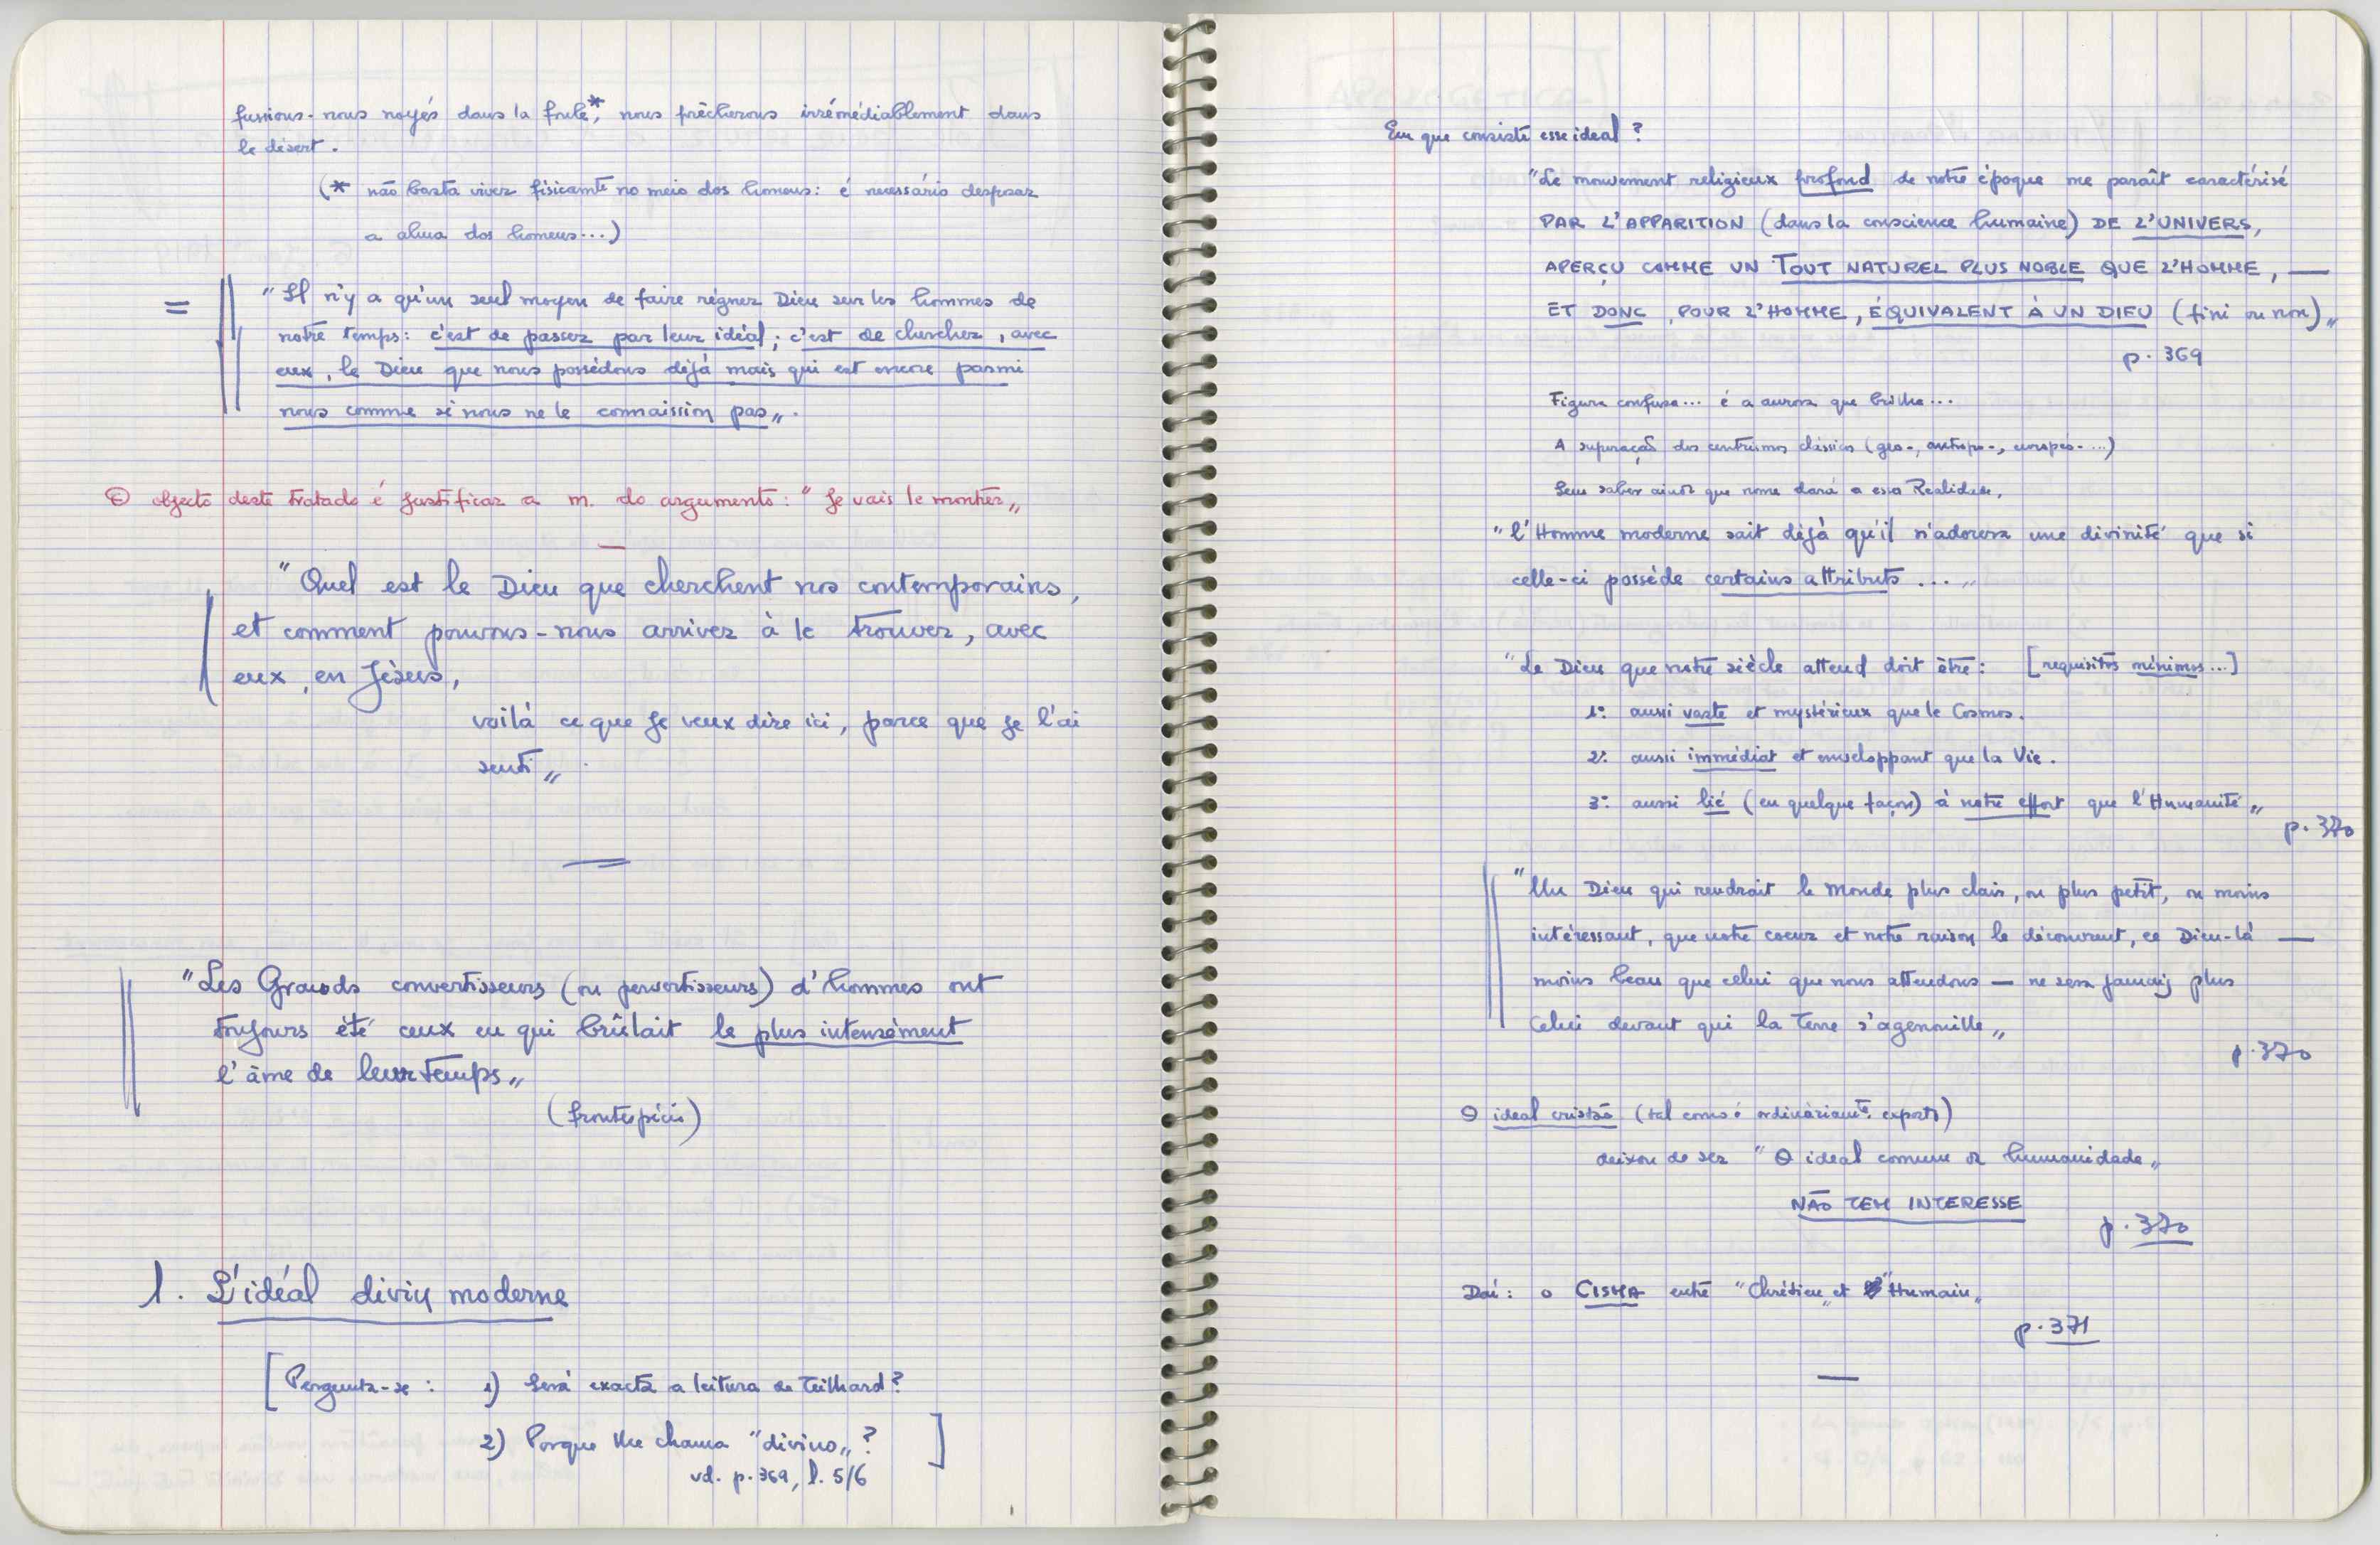 fussions-nous noyés dans la foule*, nous prêcherons irrémédiablement dans
le désert.
(* não basta viver fisicamte no meio dos homens: é necessário desposar
a alma dos homens...)
= "Il n'y a qu'un seul moyen de faire régner Dieu sur les hommes de
notre temps: c'est de passer par leur idéal; c'est de chercher, avec
eux, le Dieu que nous possédons déjà mais qui est encore parmi
nous comme si nous ne le connaission pas„.
O objecto deste tratado é justificar a m. do argumento: "Je vais le montrer„
"Quel est le Dieu que cherchent nos contemporains,
et comment pouvons-nous arriver à le trouver, avec
eux, en Jésus,
voilà ce que je veux dire ici, parce que je l'ai
senti„
"Les Grands convertisseurs (ou pervertisseurs) d'hommes ont
toujours été ceux en qui brûlait le plus intensément
l'âme de leur temps„
(frontispício)
1. L'idéal divin moderne
[Pergunta-se: 1) Será exacta a leitura de Teilhard?
2) Porque lhe chama "divino„? ]
vd. p. 369, l. 5/6
Em que consiste esse ideal?
"Le mouvement religieux profond de notre époque me paraît caractérisé
PAR L'APPARITION (dans la conscience humaine) DE L'UNIVERS,
APERÇU COMME UN TOUT NATUREL PLUS NOBLE QUE L'HOMME, —
ET DONC, POUR L'HOMME, ÉQUIVALENT À UN DIEU (fini ou non)„
p. 369
Figura confusa... é a aurora que brilha...
A superação dos centrismos clássicos (geo-, antropo-, europeo-...)
Sem saber ainda que nome dará a essa Realidade,
"l'Homme moderne sait déjà qu'il n'adorera une divinité que si
celle-ci possède certains attributs ...„
"Le Dieu que notre siècle attend doit être: [requisitos mínimos...]
1º: aussi vaste et mystérieux que le Cosmos.
2º: aussi immédiat et enveloppant que la Vie.
3º: aussi lié (en quelque façon) à notre effort que l'Humanité„
p. 370
"Un Dieu qui rendrait le Monde plus clair, ou plus petit, ou moins
intéressant, que notre coeur et notre raison le découvrent, ce Dieu-là —
moins beau que celui que nous attendons — ne sera jamais plus
Celui devant qui la Terre s'agenouille„
p. 370
O ideal cristão (tal como é ordinàriamte. exposto)
deixou de ser "O ideal comum da humanidade„
NÃO TEM INTERESSE
p. 370
Daí: o CISMA entre "Chrétien„ et "Humain„
p. 371